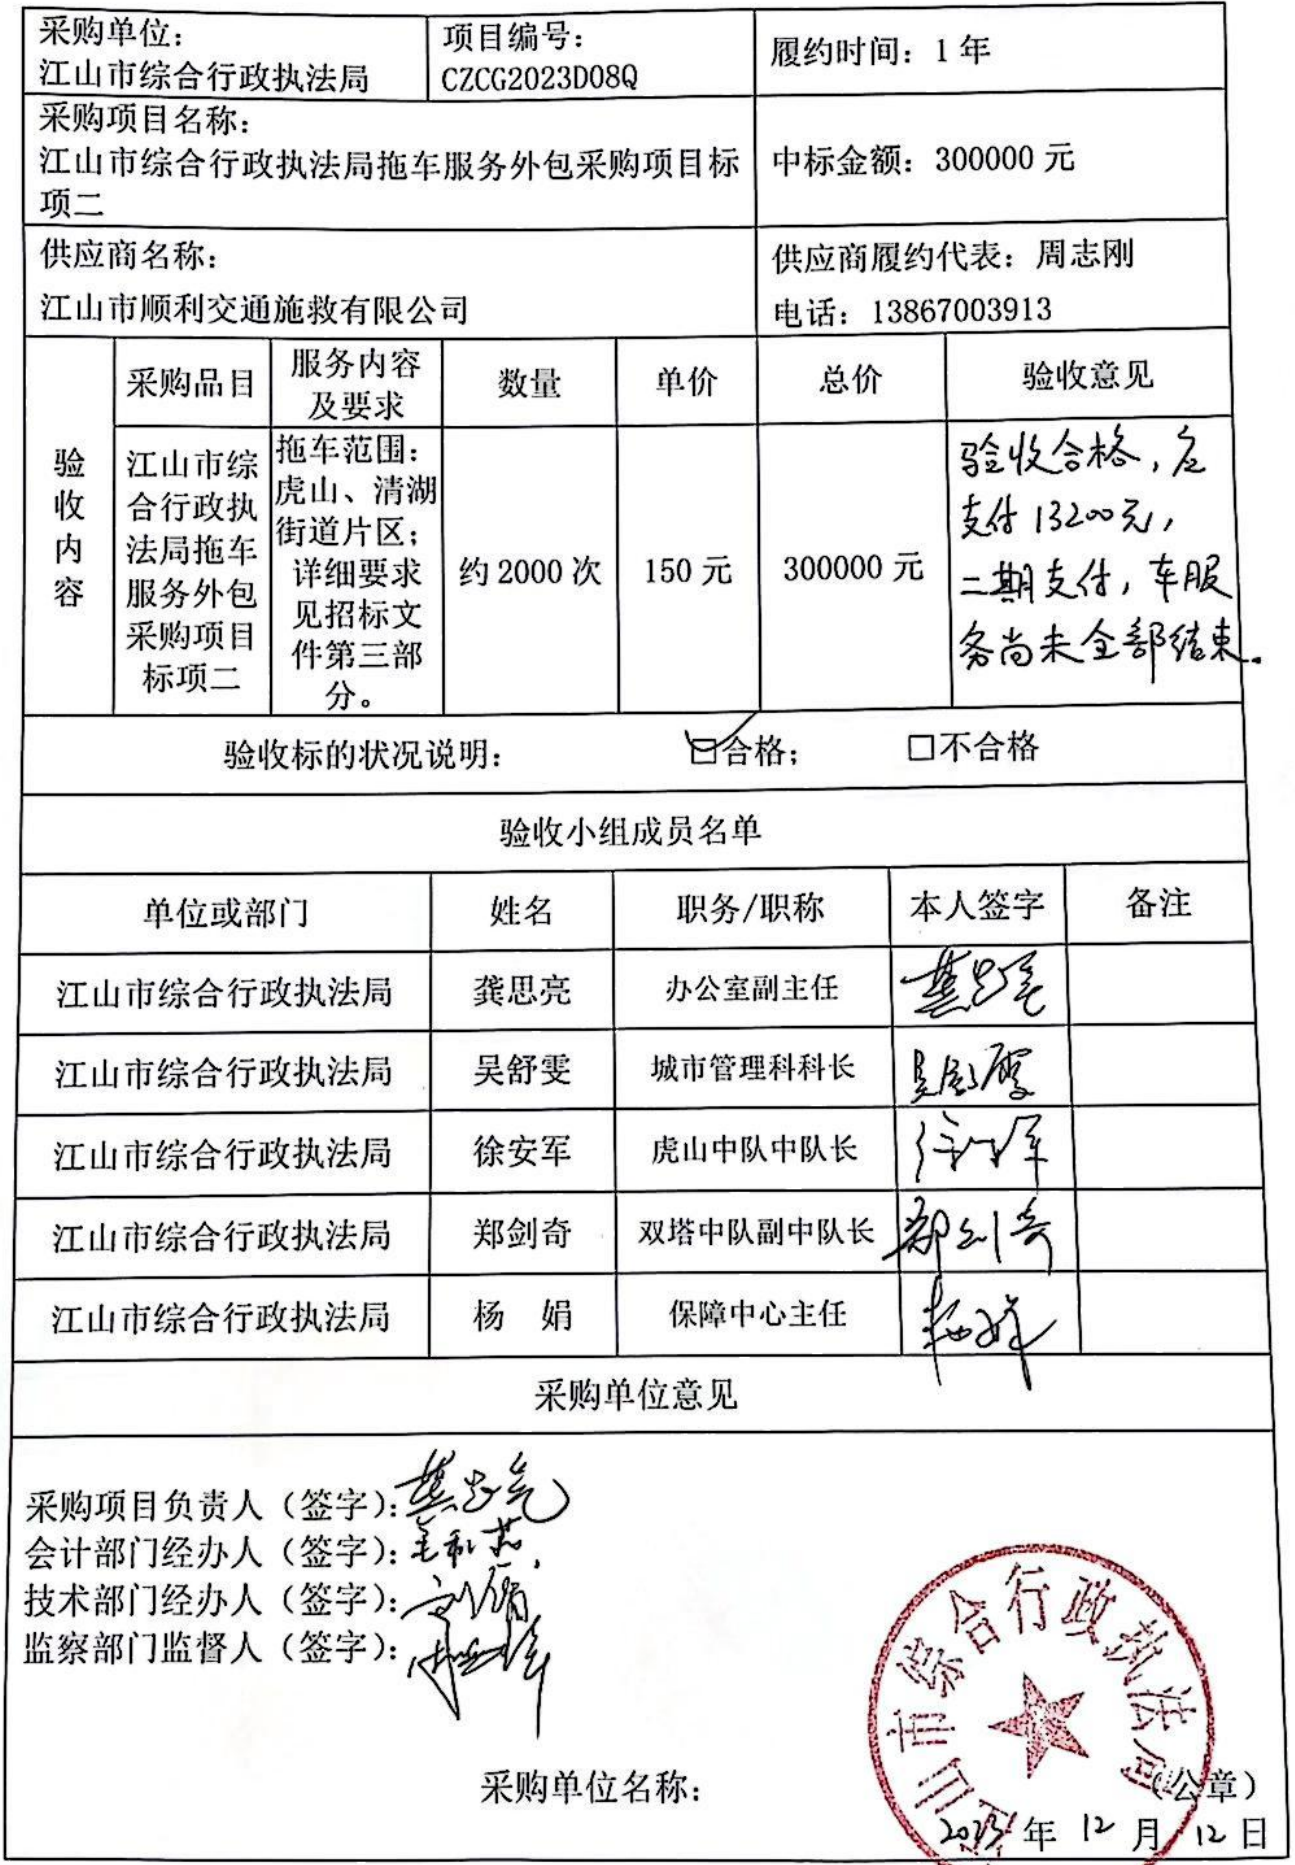 采购单位：
江山市综合行政执法局
项目编号：
CZCG2023D08Q
履约时间：1 年
采购项目名称：
江山市综合行政执法局拖车服务外包采购项目标
项二
中标金额：300000 元
供应商名称：
江山市顺利交通施救有限公司
供应商履约代表：周志刚
电话：13867003913
验
收
内
容
采购品目
服务内容
及要求
数量
单价
总价
验收意见
江山市综
合行政执
法局拖车
服务外包
采购项目
标项二
拖车范围：
虎山、清湖
街道片区；
详细要求
见招标文
件第三部
分。
约 2000 次
150 元
300000 元
验收合格，应
支付13200元，
二期支付，车服
务尚未全部结束.
验收标的状况说明：
☑合格；
□不合格
验收小组成员名单
单位或部门
姓名
职务/职称
本人签字
备注
江山市综合行政执法局
龚思亮
办公室副主任
龚思亮
江山市综合行政执法局
吴舒雯
城市管理科科长
吴舒雯
江山市综合行政执法局
徐安军
虎山中队中队长
徐安军
江山市综合行政执法局
郑剑奇
双塔中队副中队长
郑剑奇
江山市综合行政执法局
杨 娟
保障中心主任
杨娟
采购单位意见
采购项目负责人（签字）：龚思亮
会计部门经办人（签字）：
技术部门经办人（签字）：
监察部门监督人（签字）：
江山市综合行政执法局
采购单位名称：
（公章）
2023年 12 月 12 日